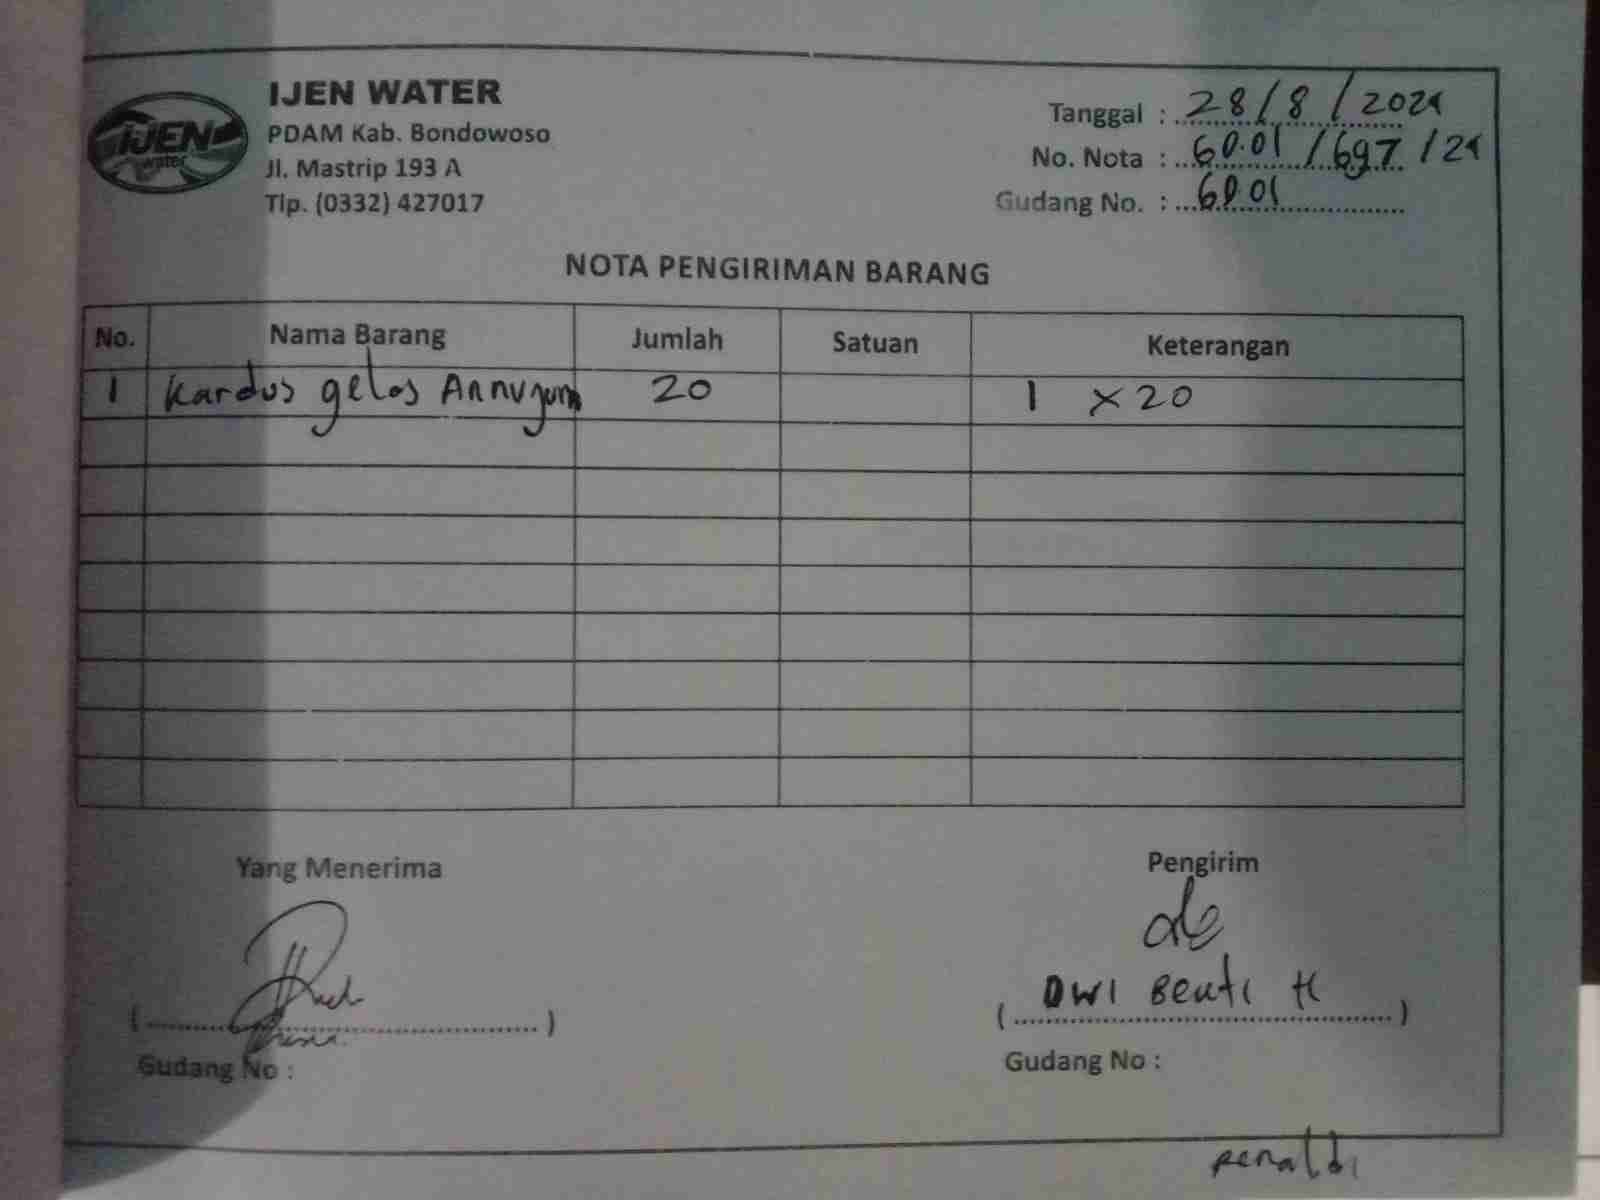 IJEN WATER
PDAM Kab. Bondowoso
Jl. Mastrip 193 A
Tlp. (0332) 427017
IJEN
water
Tanggal : 28/8/2024
No. Nota : 60.01/697/24
Gudang No. : 60.01
NOTA PENGIRIMAN BARANG
No. Nama Barang Jumlah Satuan Keterangan
1 Kardus gelas 20 1 x 20
Yang Menerima
Pengirim
DWI H
Gudang No :
Gudang No :
Renaldi